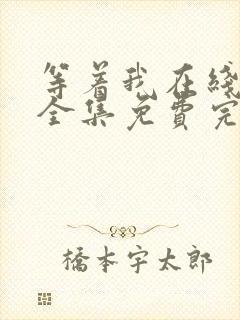 等着我在线
全集免費完
橋本宇太郎